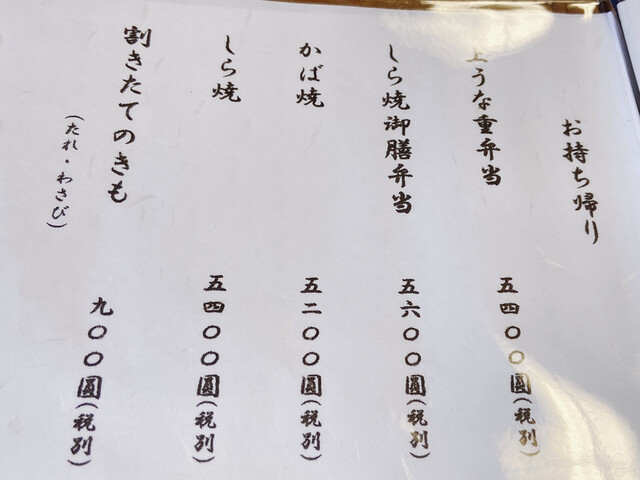 お持ち帰り
上うな重弁当
五四〇〇圓(税別)
しら焼御膳弁当
五六〇〇圓(税別)
かば焼
五二〇〇圓(税別)
しら焼
五四〇〇圓(税別)
割きたてのきも
(たれ・わさび)
九〇〇圓(税別)